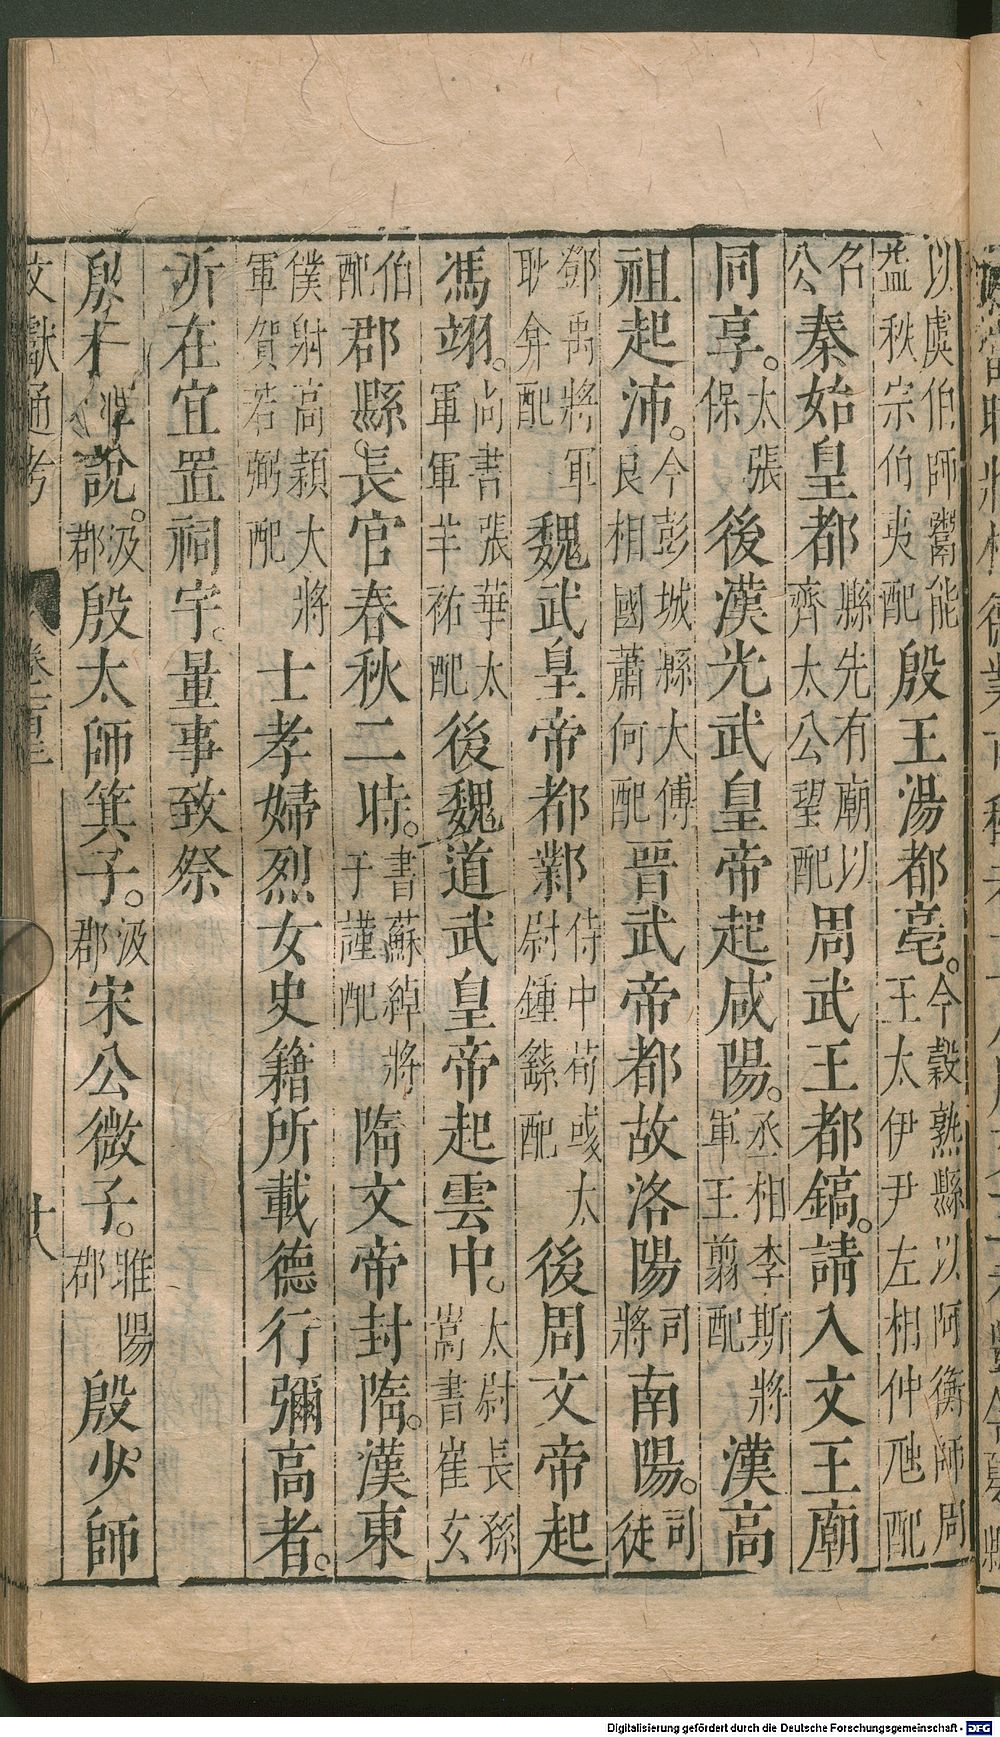 以虞伯師鬻能益秋宗伯夷配殷王湯都亳。今穀熟縣以阿衡師周王太伊尹左相仲虺配
名公秦始皇都縣先有廟以齊太公望配周武王都鎬。請入文王廟
同享。太張保後漢光武皇帝起咸陽。丞相李斯將軍王翦配漢高
祖起沛。今彭城縣大傅良相國蕭何配晉武帝都故洛陽司將南陽。司徒
鄧禹將軍耿弇配魏武皇帝都鄴侍中荀彧太尉鍾繇配後周文帝起
馮翊。尚書張華太軍軍羊祜配後魏道武皇帝起雲中。太尉長孫嵩書崔玄
伯配郡縣。長官春秋二時。書蘇綽將于謹配隋文帝封隋。漢東
僕射高熲大將軍賀若弼配士孝婦烈女史籍所載德行彌高者。
所在宜置祠宇。量事致祭
殷說。汲郡殷太師箕子。汲郡宋公微子。睢陽郡殷少師
文獻通考 卷 十八
Digitalisierung gefördert durch die Deutsche Forschungsgemeinschaft - DFG